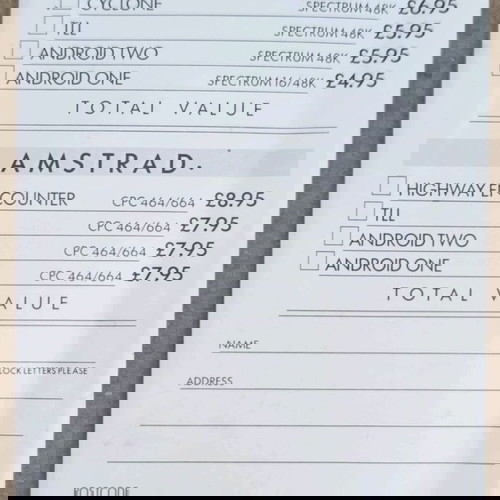 CYCLONE SPECTRUM 48K £6.95
TLL SPECTRUM 48K £5.95
ANDROID TWO SPECTRUM 48K £5.95
ANDROID ONE SPECTRUM 16/48K £4.95
TOTAL VALUE
AMSTRAD
HIGHWAY ENCOUNTER CPC 464/664 £8.95
TLL CPC 464/664 £7.95
ANDROID TWO CPC 464/664 £7.95
ANDROID ONE CPC 464/664 £7.95
TOTAL VALUE
NAME
BLOCK LETTERS PLEASE
ADDRESS
POSTCODE